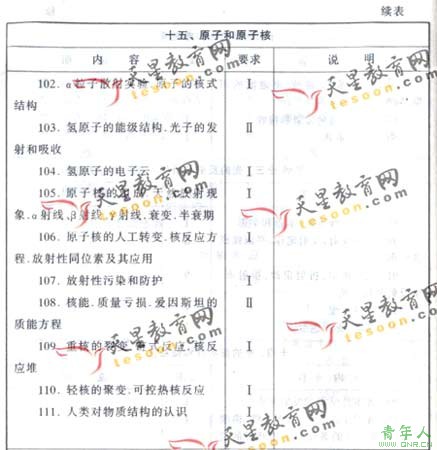 续表
十五、原子和原子核
内 容 要求 说 明
102. α粒子散射实验.原子的核式 Ⅰ
结构
103. 氢原子的能级结构.光子的发 Ⅱ
射和吸收
104. 氢原子的电子云 Ⅰ
105. 原子核的组成.天然放射现 Ⅰ
象.α射线.β射线.γ射线.衰变.半衰期
106. 原子核的人工转变.核反应方 Ⅰ
程.放射性同位素及其应用
107. 放射性污染和防护 Ⅰ
108. 核能.质量亏损.爱因斯坦的 Ⅱ
质能方程
109. 重核的裂变.链式反应.核反 Ⅰ
应堆
110. 轻核的聚变.可控热核反应 Ⅰ
111. 人类对物质结构的认识 Ⅰ
天星教育网
tesoon.com
天星教育网
tesoon.com
天星教育网
tesoon.com
天星教育网
tesoon.com
天星教育网
tesoon.com
天星教育网
tesoon.com
天星教育网
tesoon.com
青年人